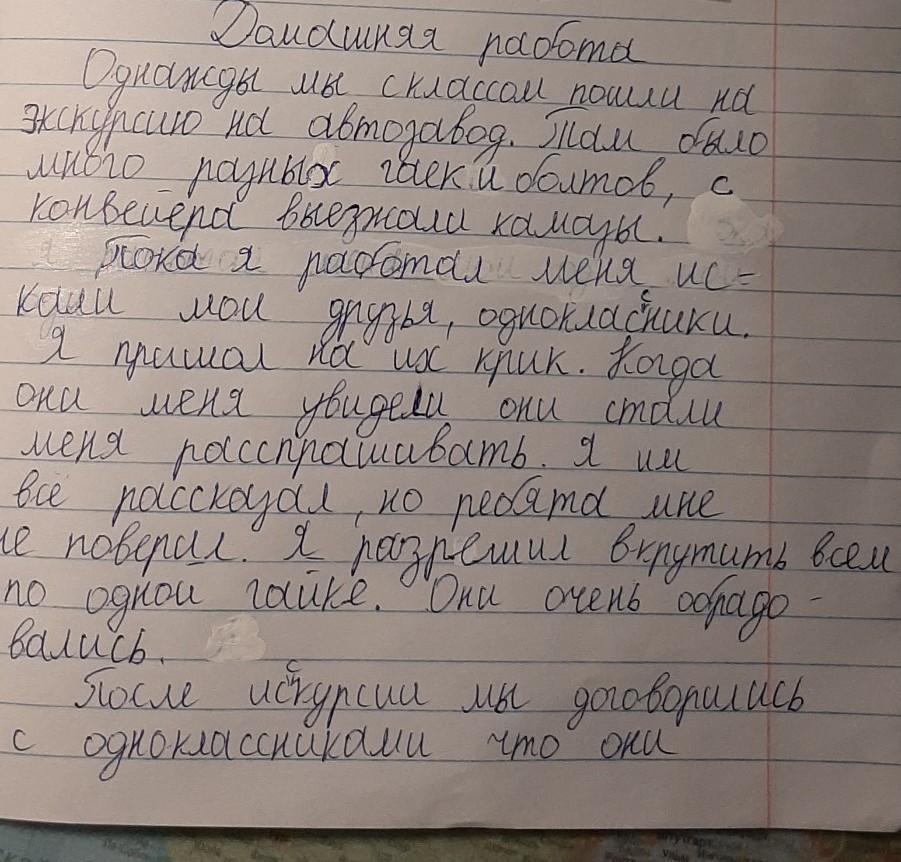 Домашняя работа
Однажды мы склассом пошли на
экскурсию на автозавод. Там было
много разных гаек и болтов, с
конвейера выезжали камазы.
Пока я работал меня ис-
кали мои друзья, одноклассники.
Я пришол на их крик. Когда
они меня увидели они стали
меня расспрашивать. Я им
всё рассказал, но ребята мне
не поверил. Я разрешил вкрутить всем
по одной гайке. Они очень обрадо-
вались.
После искурсии мы договорились
с одноклассниками что они